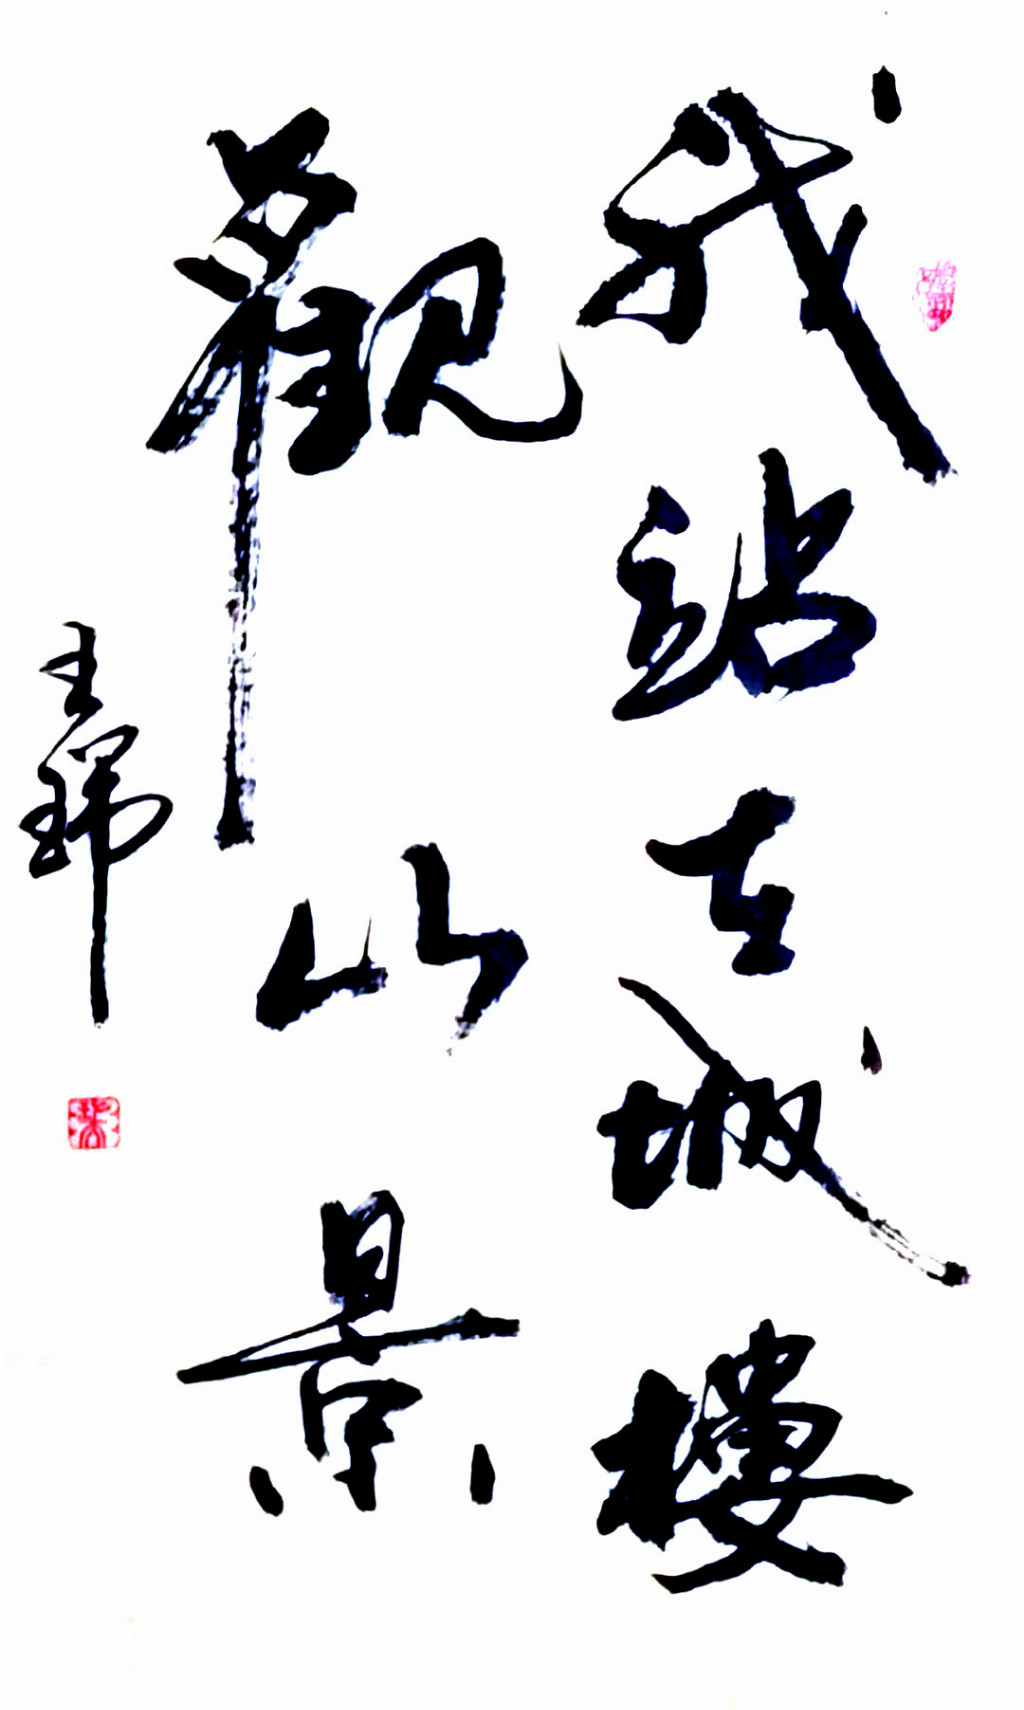 我站在城樓
觀山景
王瑋